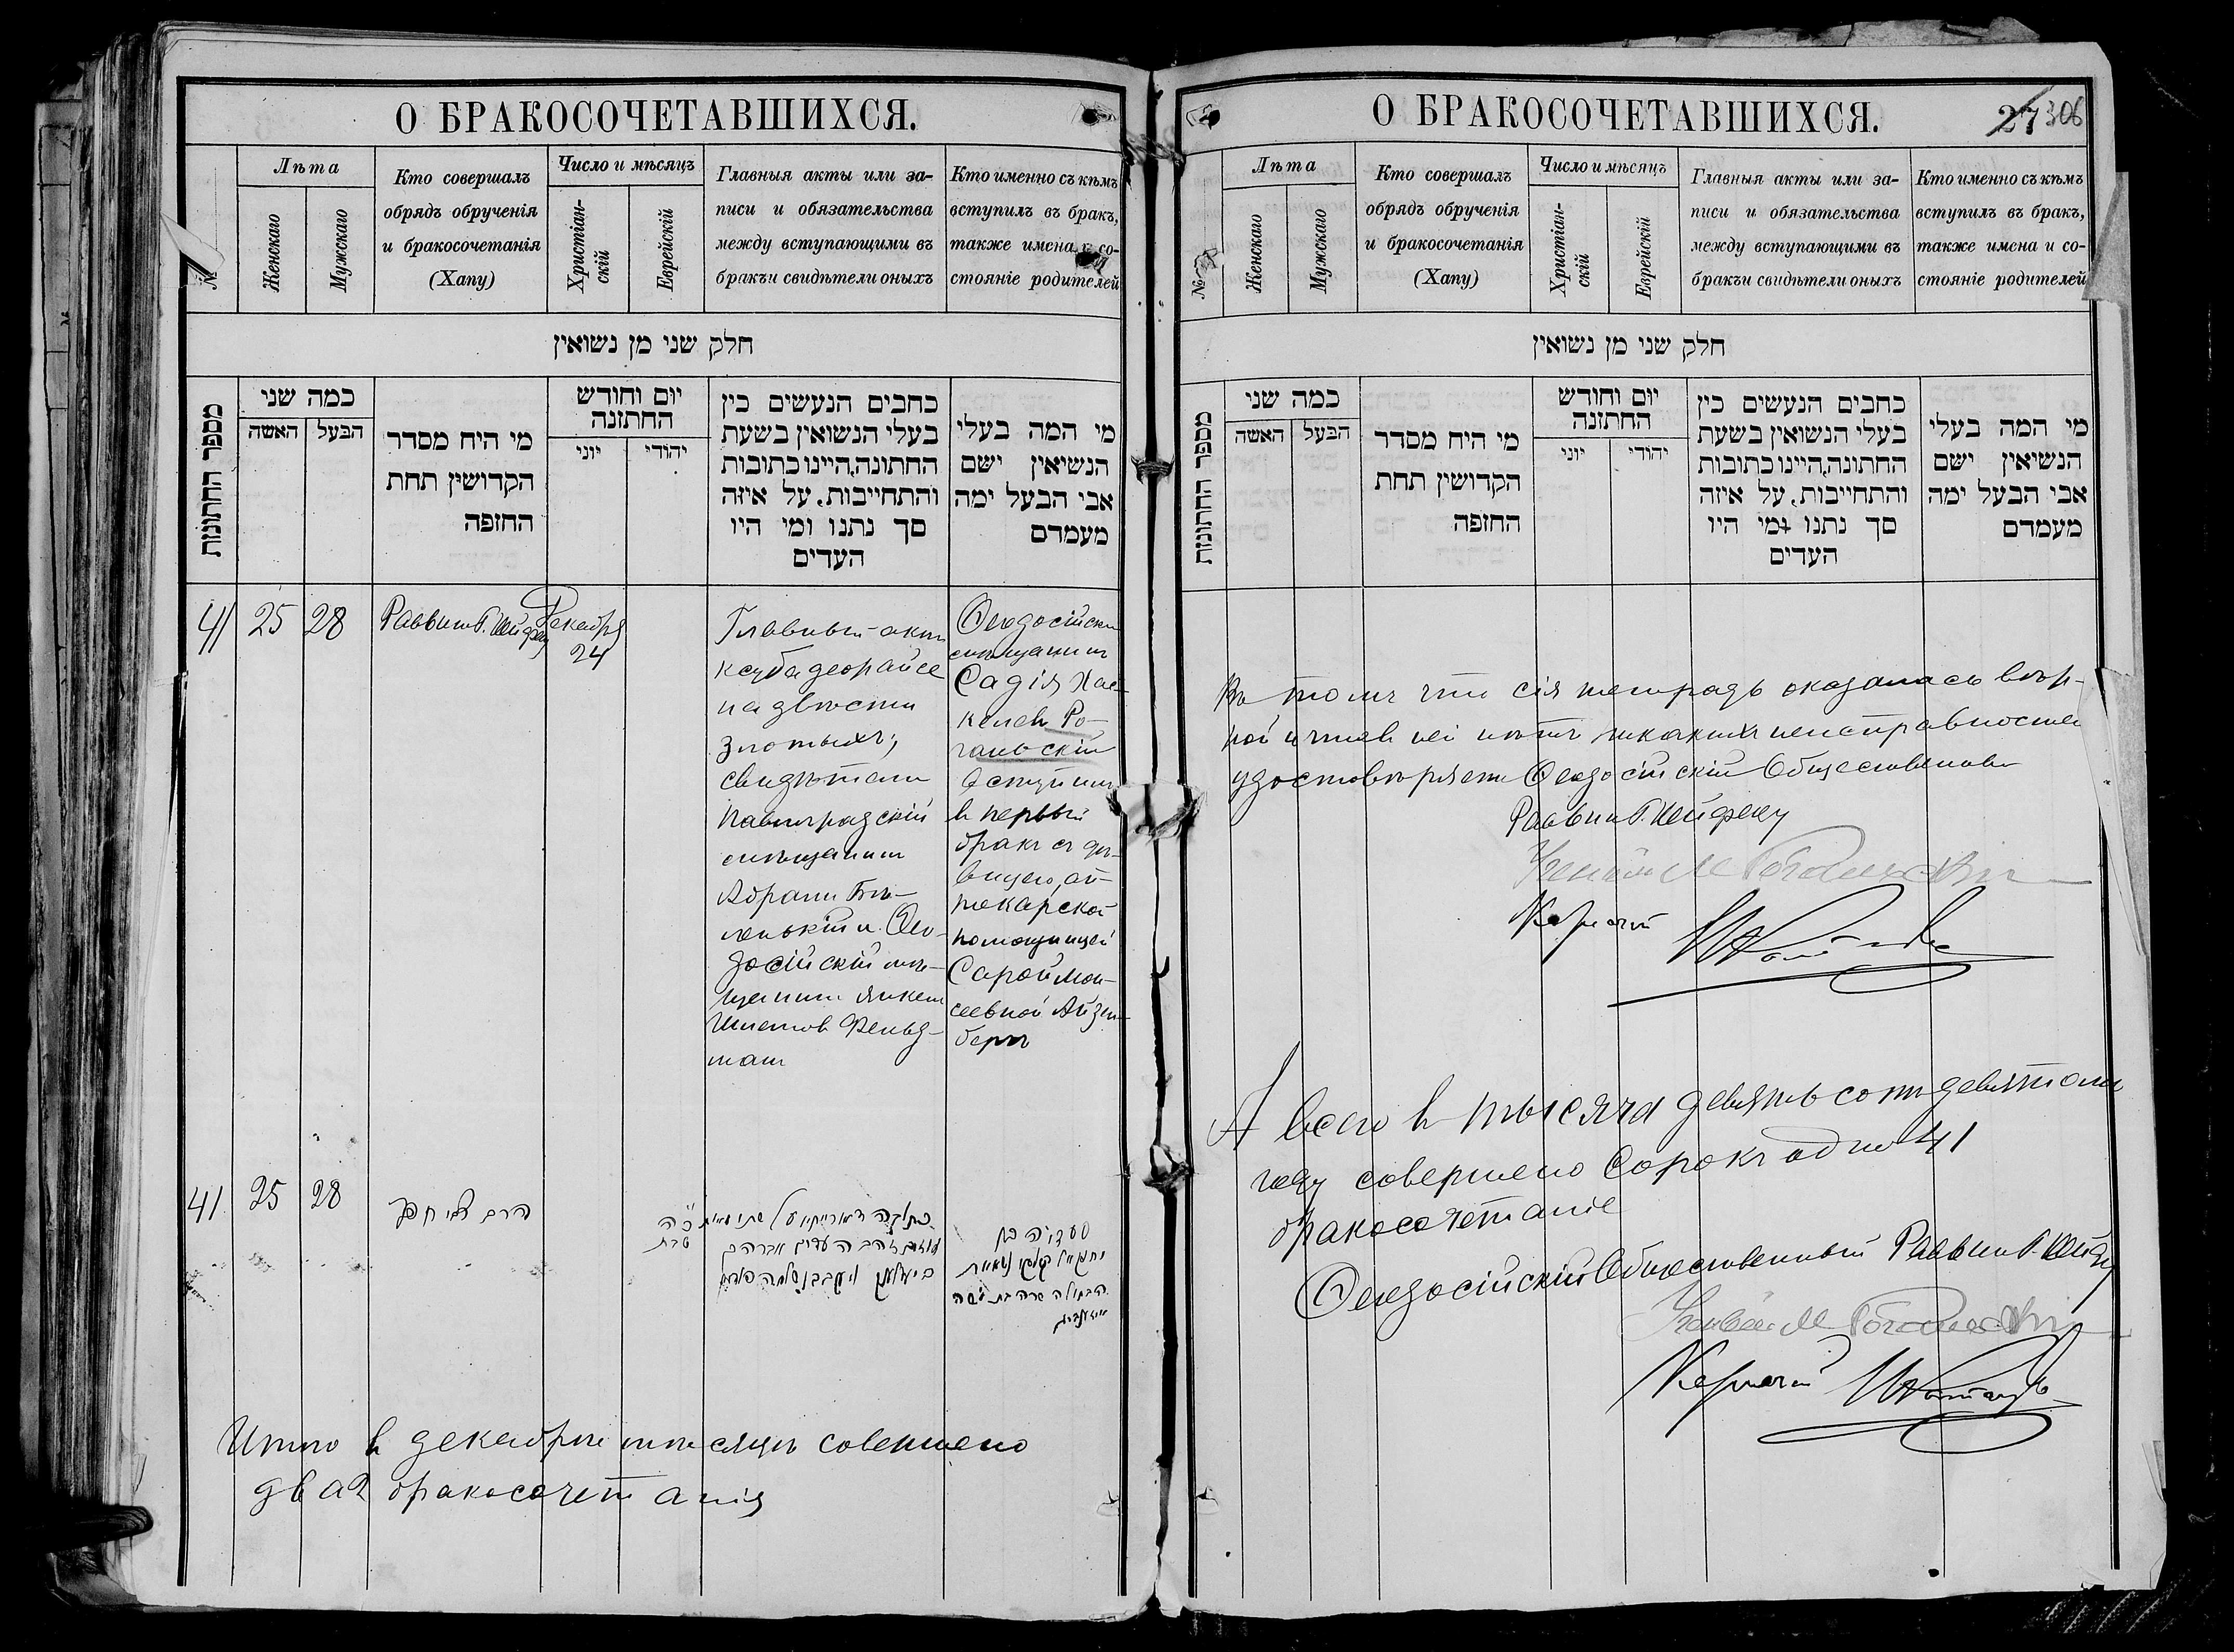 О БРАКОСОЧЕТАВШИХСЯ.
№
Лѣта
Женскаго
Мужскаго
Кто совершалъ
обрядъ обрученія
и бракосочетанія
(Хапу)
Число и мѣсяцъ
Христіан-
скій
Еврейскій
Главныя акты или за-
писи и обязательства
между вступающими въ
бракъи свидѣтели оныхъ
Кто именно съ кѣмъ
вступилъ въ бракъ,
также имена и со-
стояніе родителей
חלק שני מן נשואין
מספר החתונות
כמה שני
האשה
הבעל
מי היח מסדר
הקדושין תחת
החופה
יום וחודש
החתונה
יוני
יהודי
כחבים הנעשים כין
בעלי הנשואין בשעת
החתונה,היינו כתובות
והתחייבות, על איזה
סך נתנו ומי היו
העדים
מי המה בעלי
הנשיאין ישם
אבי הבעל ימה
מעמדם
41
25
28
Раввинъ Г. Шейфеху
Декабря
24
Главный актъ
ксуба деорайсе
на двѣсти
злотыхъ;
свидѣтели
Павлоградскій
мѣщанинъ
Абрамъ Бѣ-
ленькій и Ѳео-
досійскій мѣ-
щанинъ Янкель
Шлемовъ Фельд-
манъ
Ѳеодосійскій
мѣщанинъ
Садія Хас-
келевъ Ро-
гальскій
вступилъ
въ первый
бракъ съ дѣ-
вицею, ап-
текарской
помощницей
Сарой Мои-
сеевной Айзен-
бергъ
41
25
28
כ״ה
טבת
סעדיה בן
הבתולה שרה בת משה
Итого въ декабрѣ мѣсяцѣ совершено
два 2 бракосочетанія
О БРАКОСОЧЕТАВШИХСЯ.
27 306
№
Лѣта
Женскаго
Мужскаго
Кто совершалъ
обрядъ обрученія
и бракосочетанія
(Хапу)
Число и мѣсяцъ
Христіан-
скій
Еврейскій
Главныя акты или за-
писи и обязательства
между вступающими въ
бракъи свидѣтели оныхъ
Кто именно съ кѣмъ
вступилъ въ бракъ,
также имена и со-
стояніе родителей
חלק שני מן נשואין
מספר החתונות
כמה שני
האשה
הבעל
מי היח מסדר
הקדושין תחת
החופה
יום וחודש
החתונה
יוני
יהודי
כחבים הנעשים כין
בעלי הנשואין בשעת
החתונה,היינו כתובות
והתחייבות, על איזה
סך נתנו ומי היו
העדים
מי המה בעלי
הנשיאין ישם
אבי הבעל ימה
מעמדם
Въ томъ что сія тетрадь оказалась вѣр-
ной и что въ ней нѣтъ никакихъ неисправностей
удостовѣряетъ Ѳеодосійскій Общественный
Раввинъ Г. Шейфеху
А всего въ тысяча девятьсотъ девятомъ
году совершено Сорокъ одно 41
бракосочетаніе
Ѳеодосійскій Общественный Раввинъ Г. Шейфеху